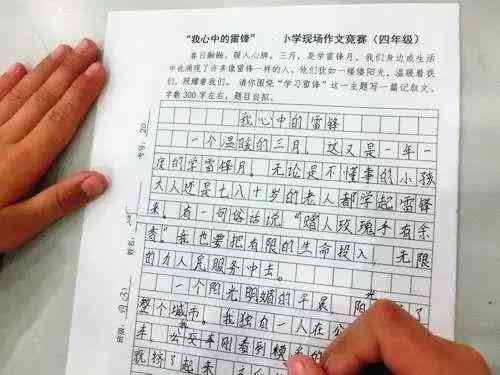 “我心中的雷锋” 小学现场作文竞赛（四年级）
春日融融，暖人心脾。三月，是学雷锋月。我们身边或生活
中也涌现了许多像雷锋一样的人。他们犹如一缕缕阳光，温暖着我
们，照耀着我们。请你围绕“学习雷锋”这一主题写一篇记叙文。
字数300字左右，题目自拟。
我心中的雷锋
一个温暖的三月，这又是一年一
度的学雷锋月。无论是不懂事的小孩
大人还是七八十岁的老人都学起雷锋
来。有一句俗话说：“赠人玫瑰手有余
香”我也要把有限的生命投入，无限
的为人民服务中去。
一个阳光明媚的早晨，阳光
整个城市。我独自一人在公
来，公交车刚看到
就挤了起来
考号：20
姓名：
班级：四(3)